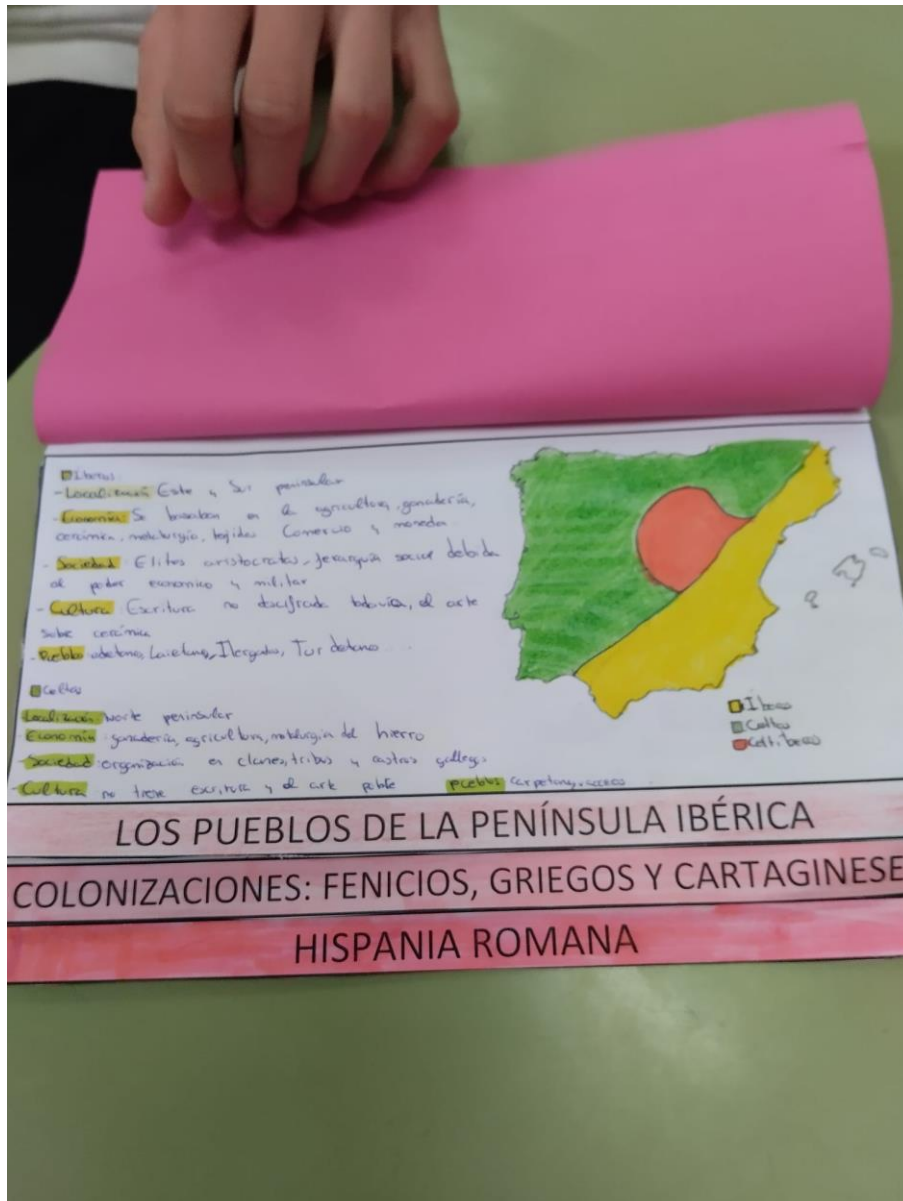 Iberos:
- Localización Este y Sur peninsular
- Economía Se basaban en la agricultura, ganadería,
cerámica, metalurgia, tejidos Comercio y moneda
- Sociedad: Elites aristocradas, Jerarquía social debida
al poder económico y militar
- Cultura: Escritura no descifrada todavía, el arte
sobre cerámica
- Pueblo: Laietano, Tur detano
Celtas
Localización: Norte peninsular
- Economía: ganadería, agricultura, metalurgia del hierro
- Sociedad: organización en clanes, tribus y castros gallegos
- Cultura no tiene escritura y el arte pueblos carpetanos
Iberos
Celtas
Celtiberos
LOS PUEBLOS DE LA PENÍNSULA IBÉRICA
COLONIZACIONES: FENICIOS, GRIEGOS Y CARTAGINESE
HISPANIA ROMANA